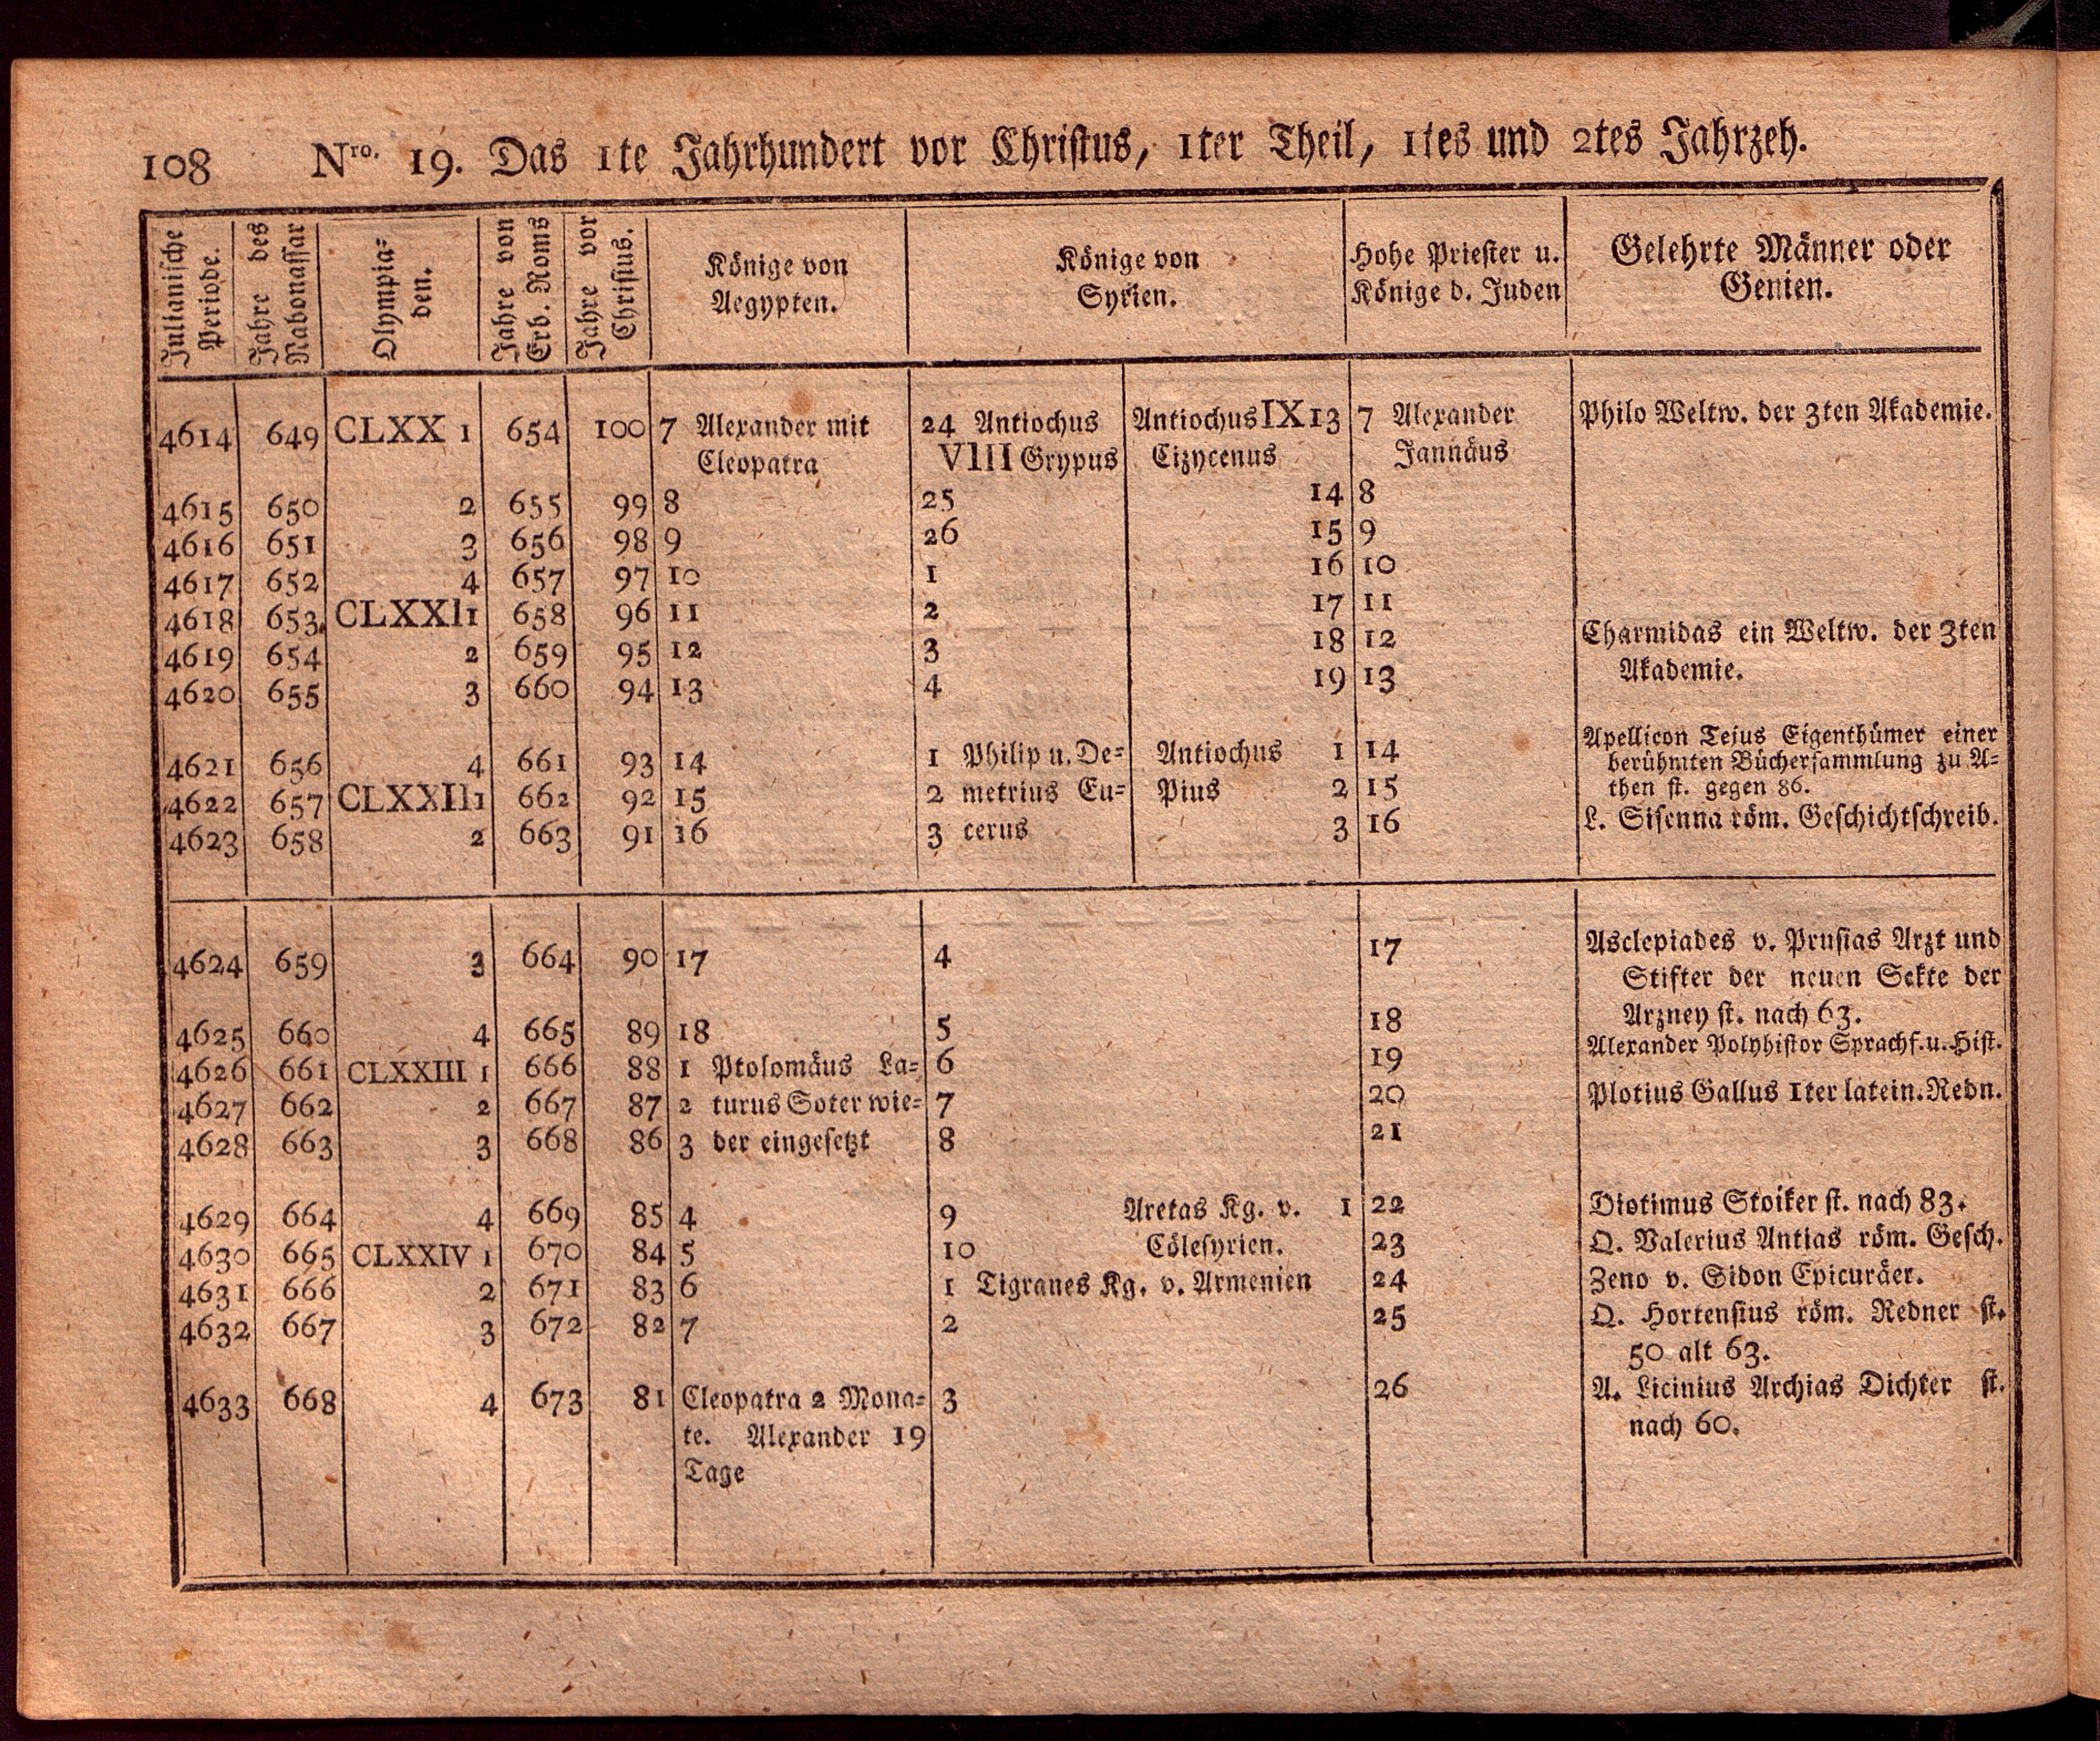 108 Nro. 19. Das 1te Jahrhundert vor Christus, 1ter Theil, 1tes und 2tes Jahrzeh.
Julianische Periode. | Jahre des Nabonassar | Olympia= den. | Jahre von Erb. Roms | Jahre vor Christus. | Könige von Aegypten. | Könige von Syrien. | Hohe Priester u. Könige d. Juden | Gelehrte Männer oder Genien.
4614 649 CLXX 1 654 100 7 Alexander mit 24 Antiochus Antiochus IX 13 7 Alexander Philo Weltw. der 3ten Akademie.
Cleopatra VIII Grypus Cizycenus Jannäus
4615 650 2 655 99 8 25 14 8
4616 651 3 656 98 9 26 15 9
4617 652 4 657 97 10 1 16 10
4618 653 CLXXI 1 658 96 11 2 17 11
4619 654 2 659 95 12 3 18 12 Charmidas ein Weltw. der 3ten
4620 655 3 660 94 13 4 19 13 Akademie.
4621 656 4 661 93 14 1 Philip u. De= Antiochus 1 14 Apellicon Tejus Eigenthümer einer
berühmten Büchersammlung zu A=
4622 657 CLXXII 1 662 92 15 2 metrius Eu= Pius 2 15 then st. gegen 86.
4623 658 2 663 91 16 3 cerus 3 16 L. Sisenna röm. Geschichtschreib.
4624 659 3 664 90 17 4 17 Asclepiades v. Prusias Arzt und
Stifter der neuen Sekte der
4625 660 4 665 89 18 5 18 Arzney st. nach 63.
4626 661 CLXXIII 1 666 88 1 Ptolomäus La= 6 19 Alexander Polyhistor Sprachf. u. Hist.
4627 662 2 667 87 2 turus Soter wie= 7 20 Plotius Gallus 1ter latein. Redn.
4628 663 3 668 86 3 der eingesetzt 8 21
4629 664 4 669 85 4 9 Aretas Kg. v. 1 22 Diotimus Stoiker st. nach 83.
4630 665 CLXXIV 1 670 84 5 10 Cölesyrien. 23 Q. Valerius Antias röm. Gesch.
4631 666 2 671 83 6 1 Tigranes Kg. v. Armenien 24 Zeno v. Sidon Epicuräer.
4632 667 3 672 82 7 2 25 Q. Hortensius röm. Redner st.
50 alt 63.
4633 668 4 673 81 Cleopatra 2 Mona= 3 26 A. Licinius Archias Dichter st.
te. Alexander 19 nach 60.
Tage